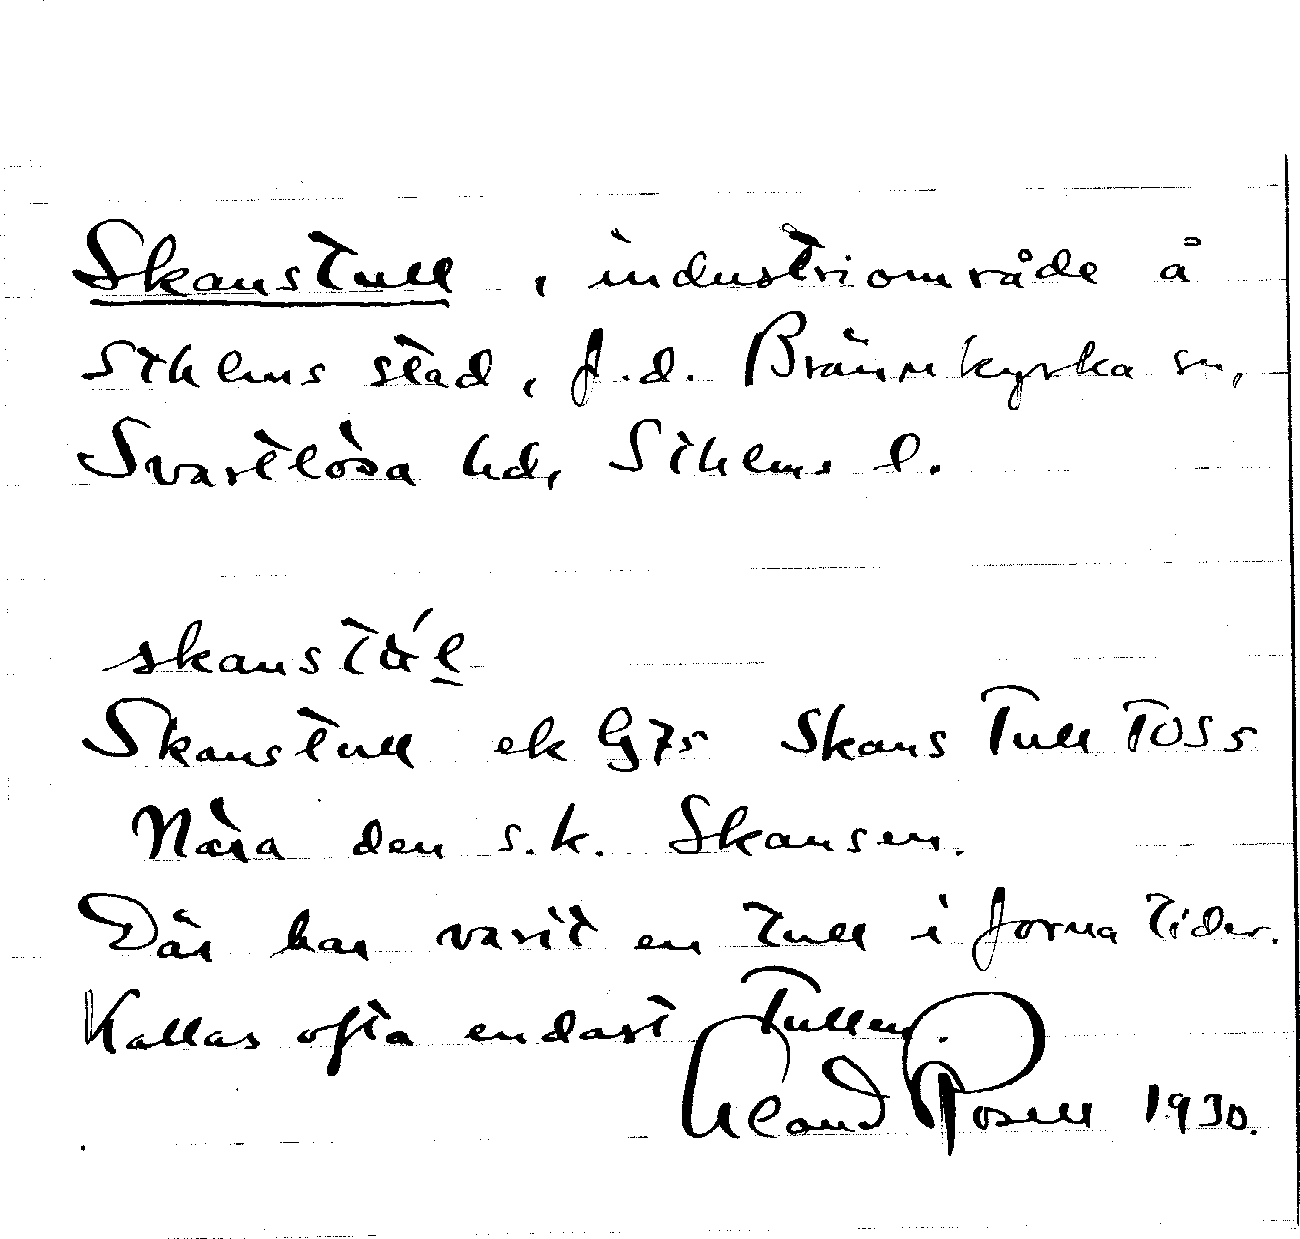 Skanstull, industriområde å
Sthlms stad, f.d. Brännkyrka sn,
Svartlösa hd, Sthlms l.
Skanstull ek G75 Skans Tull TOS5
Nära den s.k. Skansen.
Där har varit en tull i forna tider.
Kallas ofta endast Tullen.
Rosell 1930.